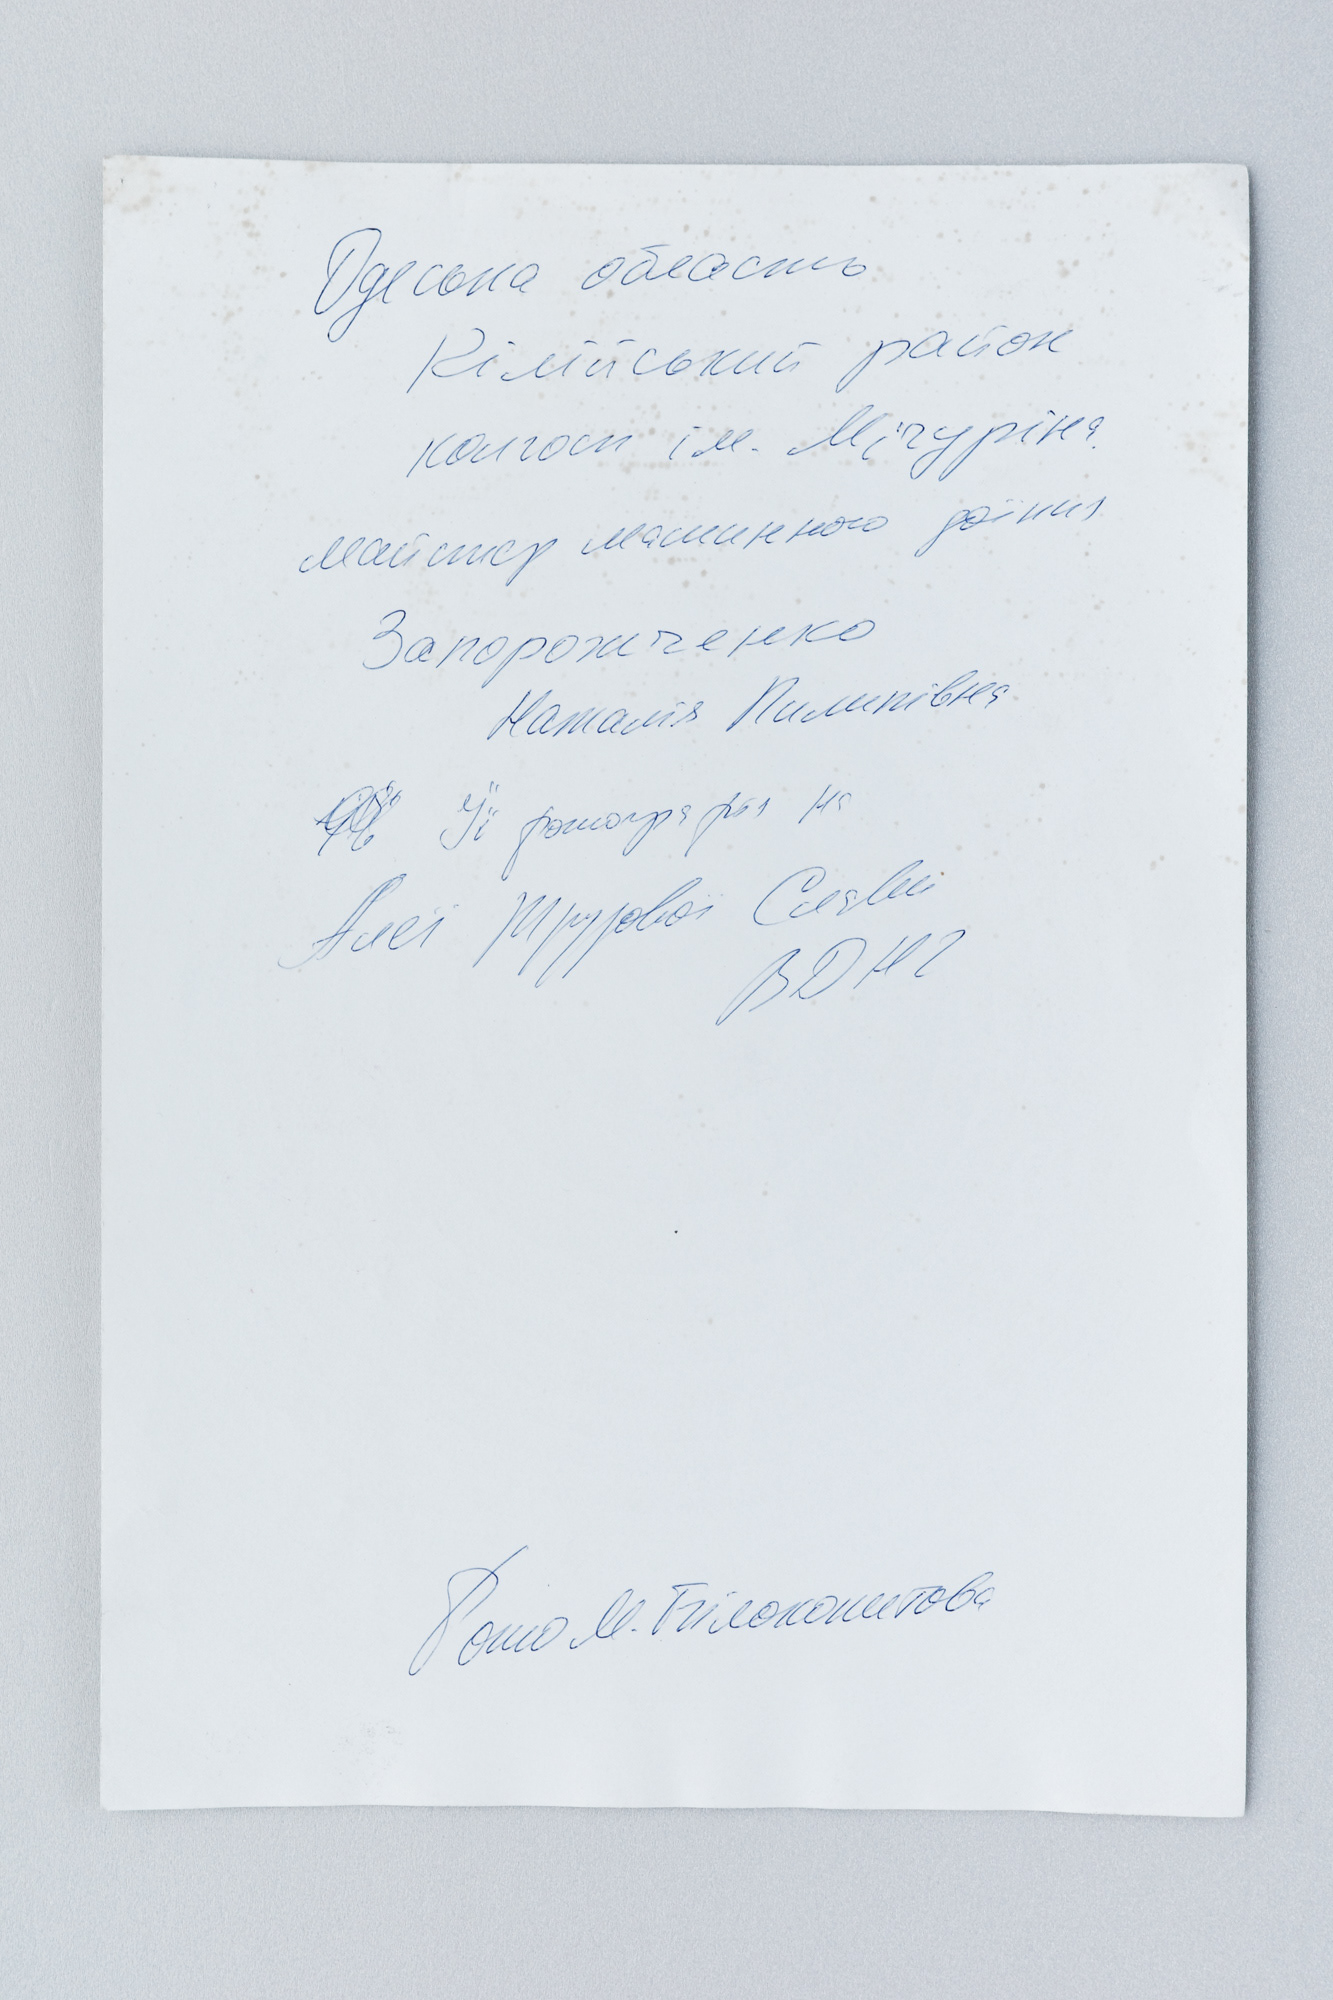 Одеська область
Кілійський район
колгосп ім. Мічуріна
майстер машинного доїння
Запорожченко
Наталія Пилипівна
Її фотографія на
Алеї Трудової Слави
ВДНГ
Фото М. Білокопитова